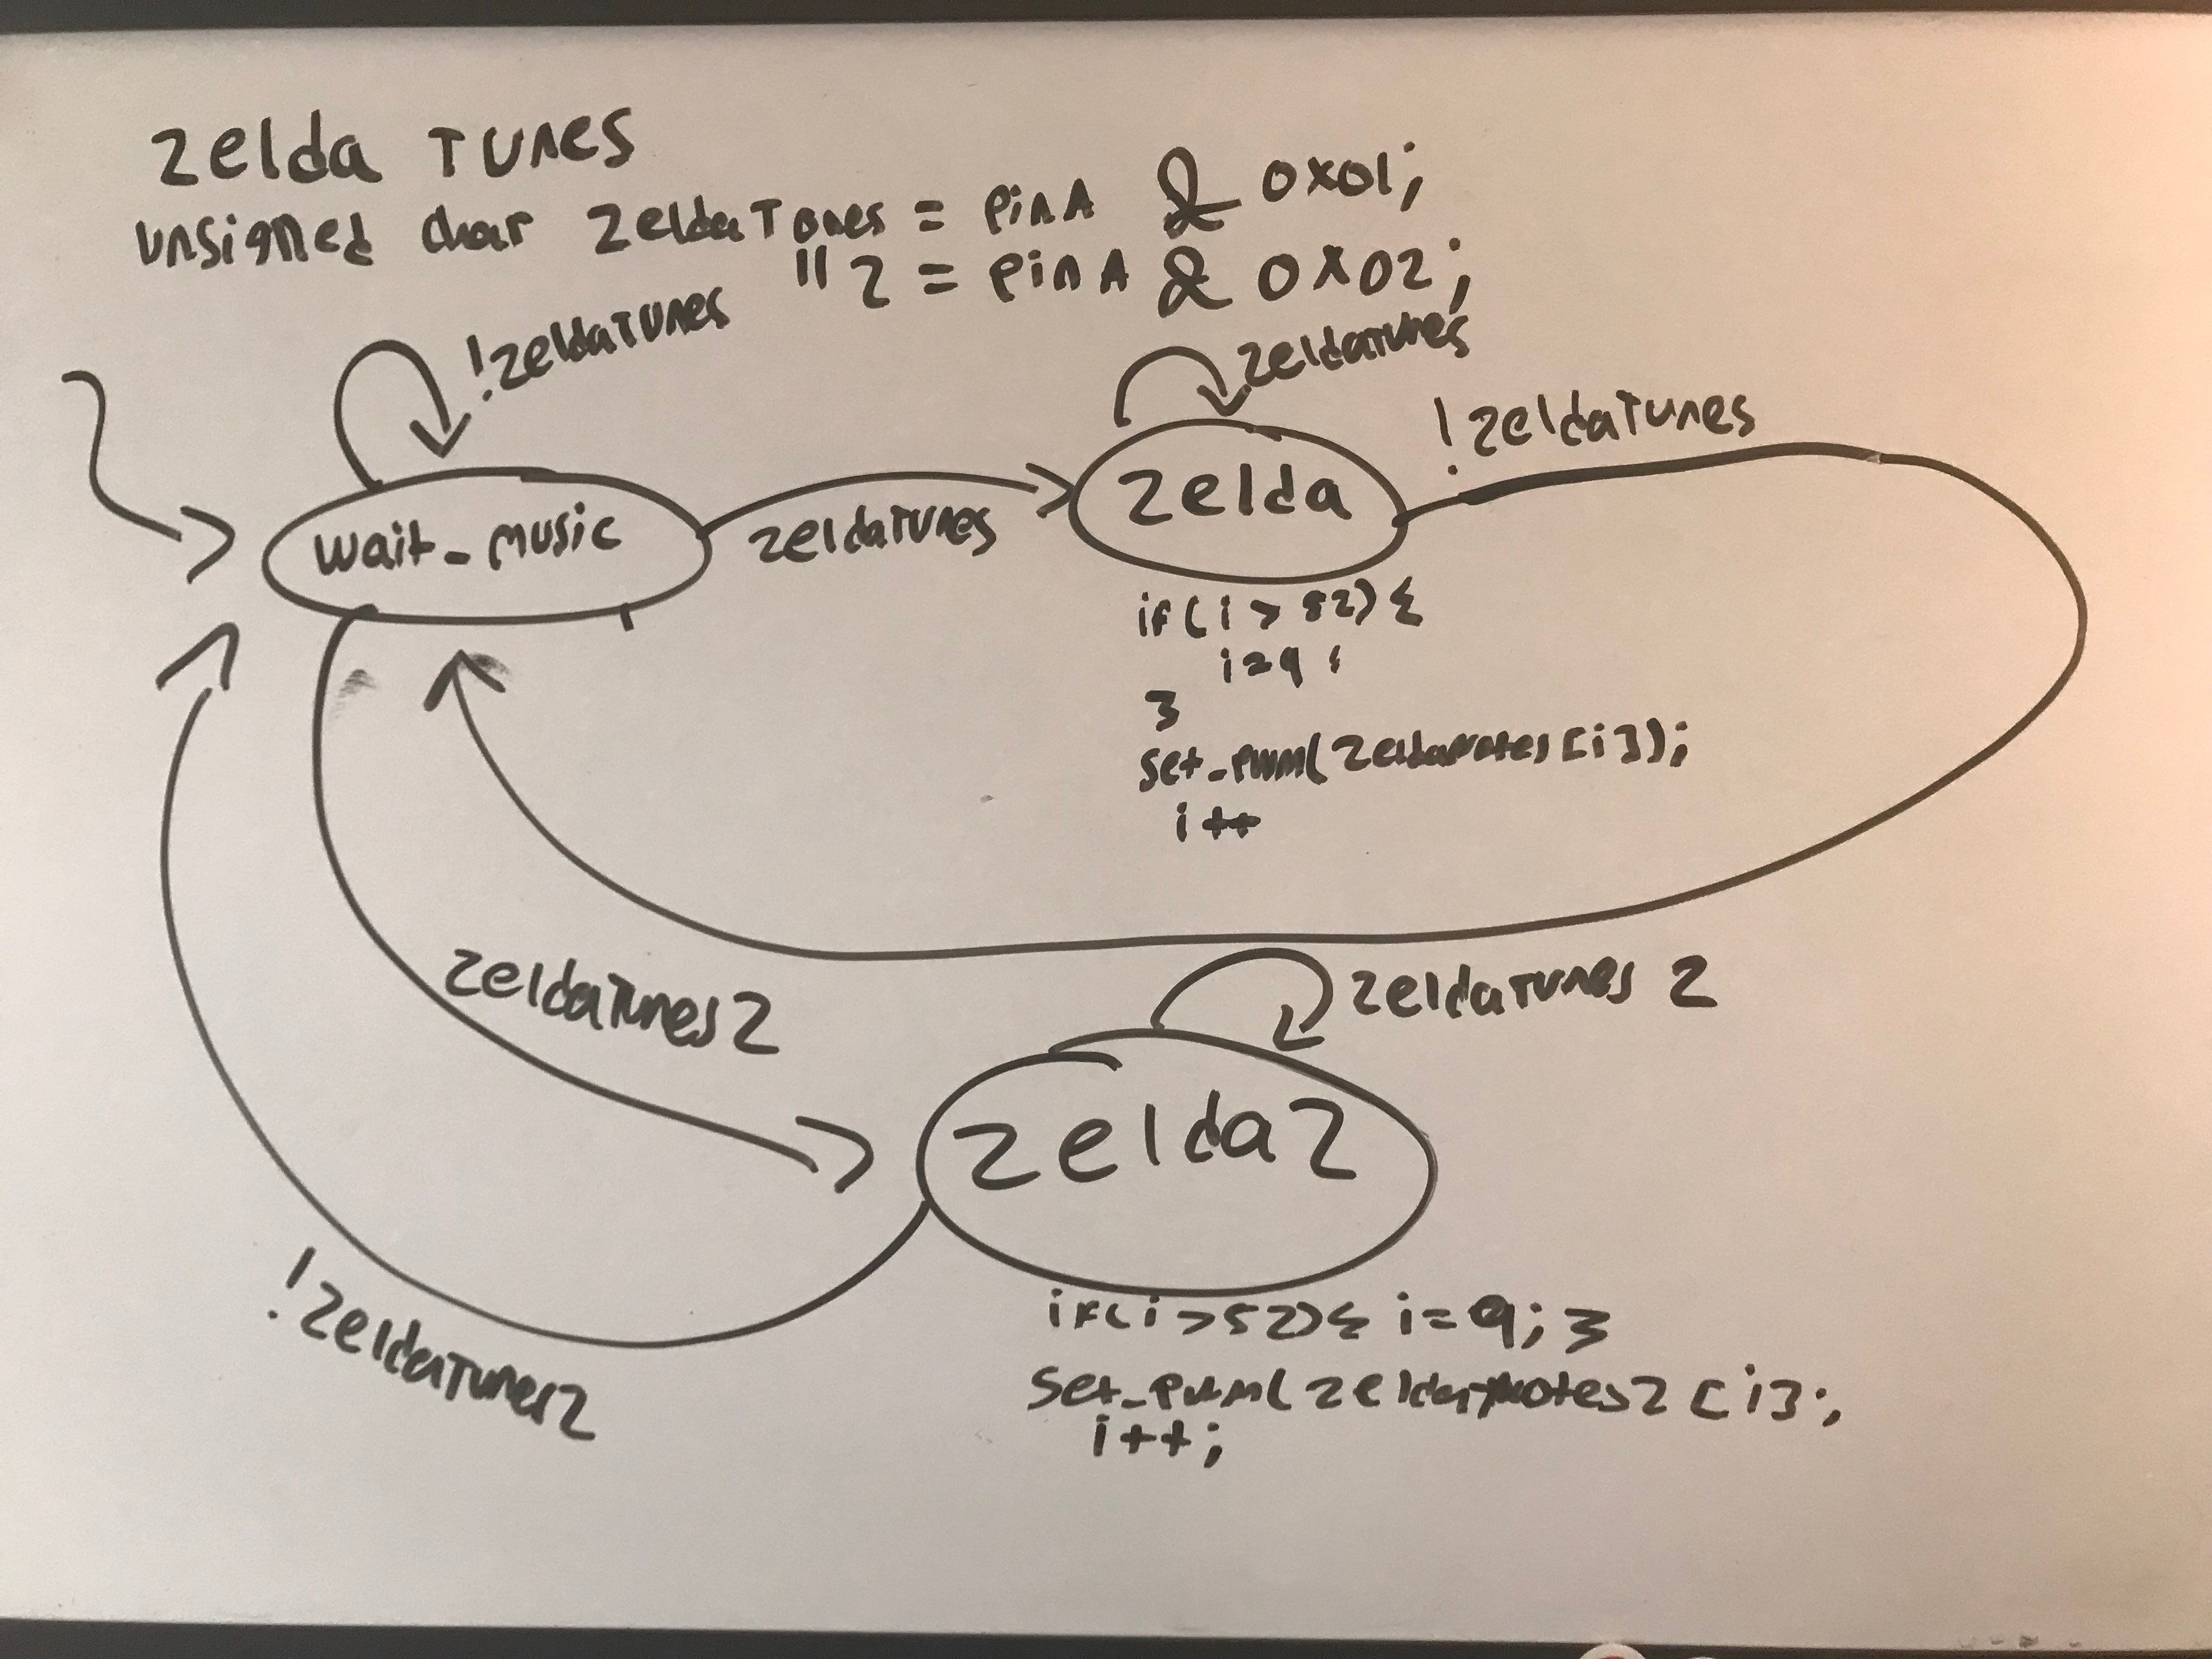 Zelda Tunes
unsigned char ZeldaTones = pinA & 0x01;
" 2 = pinA & 0x02;
!zeldaTunes
zeldaTunes
!zeldaTunes
wait_music
zeldaTunes
zelda
if(i > 52){
i=9;
}
set_pwm(ZeldaNotes[i]);
i++
zeldaTunes2
zeldaTunes 2
zelda2
!zeldaTunes2
if(i > 52){ i=9; }
set_pwm(zeldaNotes2[i];
i++;